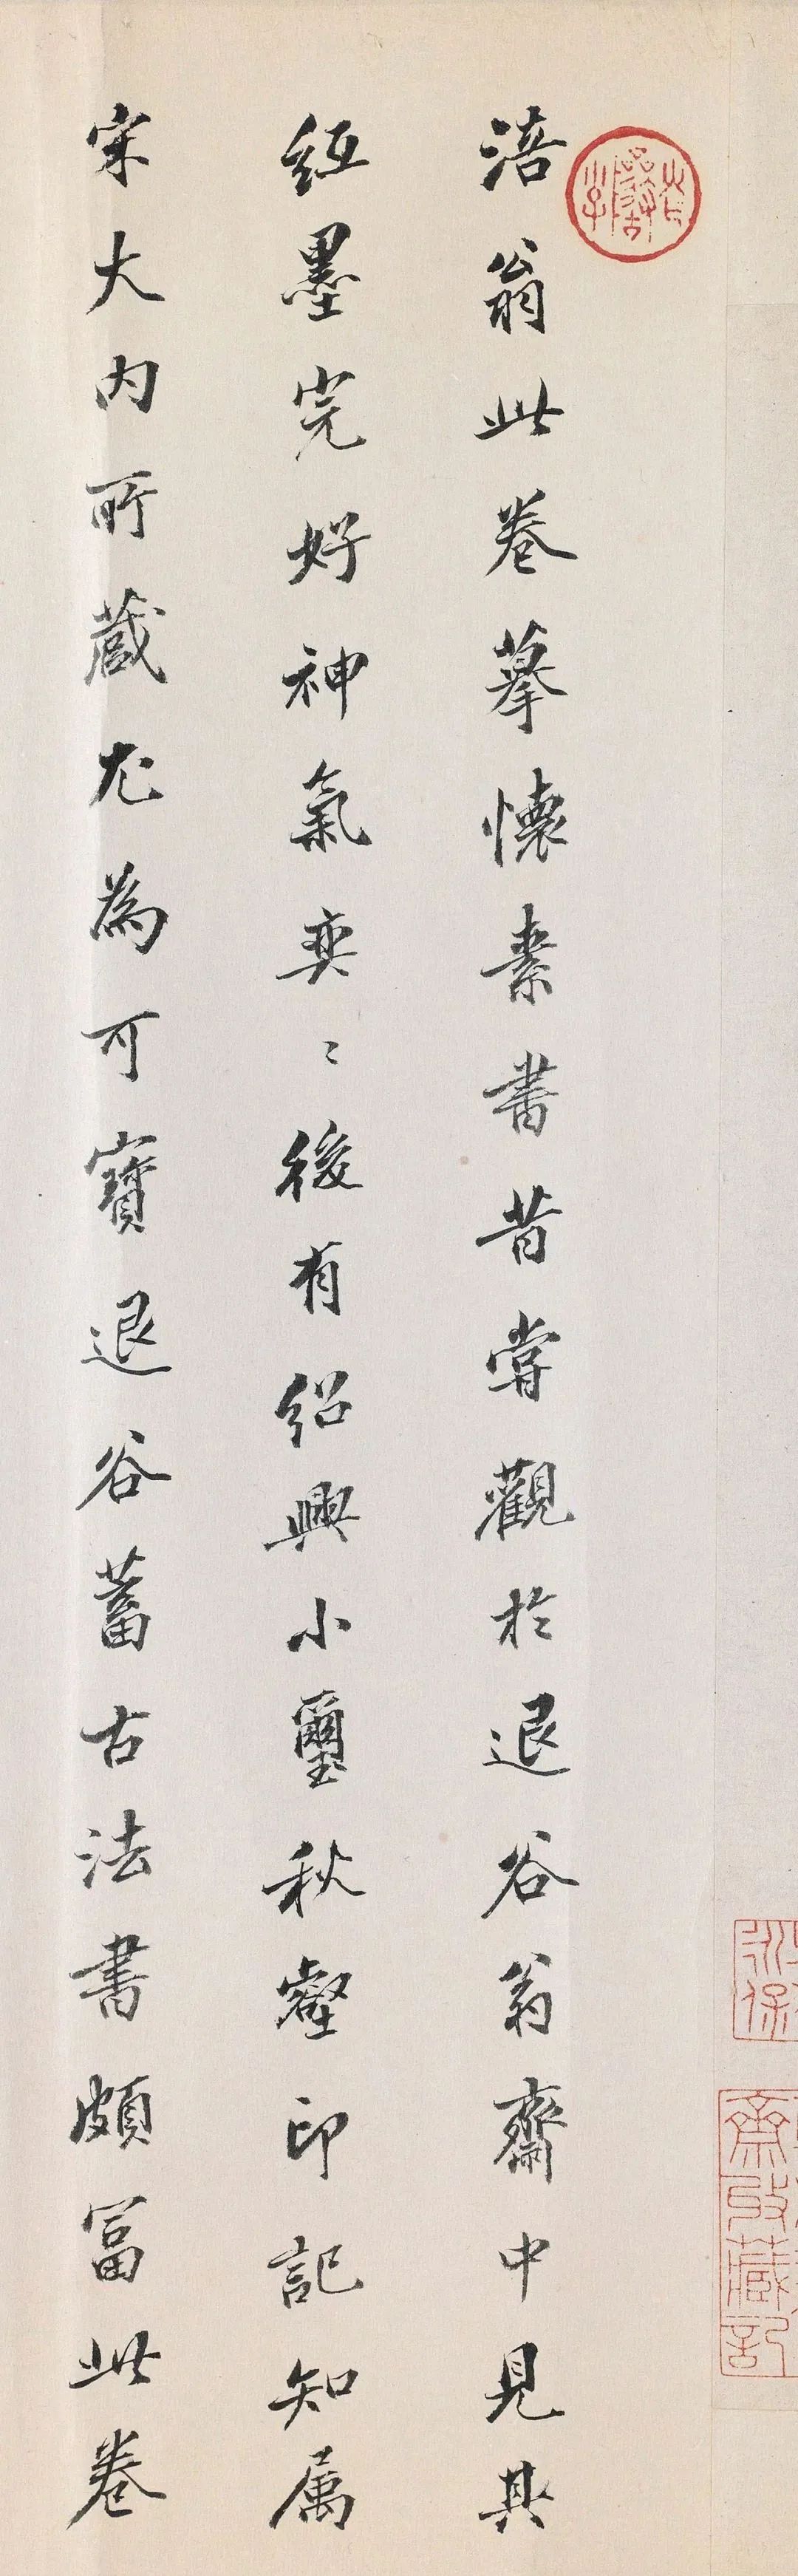 涪翁此卷摹懷素書昔嘗觀於退谷翁齋中見其
紙墨完好神氣奕〻後有紹興小璽秋壑印記知属
宋大内所蔵尤為可寶退谷蓄古法書頗富此卷
齋收藏記